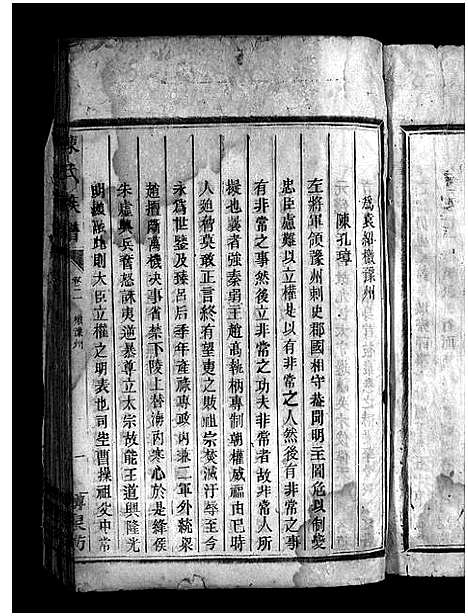 為袁紹檄豫州
陳孔璋
左將軍領豫州刺史郡國相守蓋聞明主圖危以制變
忠臣慮難以立權是以有非常之人然後有非常之事
有非常之事然後立非常之功夫非常者故非常人所
擬也曩者強秦弱主趙高執柄專制朝權威福由己時
人迫脅莫敢正言終有望夷之敗祖宗焚滅汙辱至今
永為世鑒及臻呂后季年產祿專政內兼二軍外統梁
趙擅斷萬機決事省禁下陵上替海內寒心於是絳侯
朱虛興兵奮怒誅夷逆暴尊立太宗故能王道興隆光
明顯融此則大臣立權之明表也司空曹操祖父中常
陳氏族譜
卷二
檄豫州
一